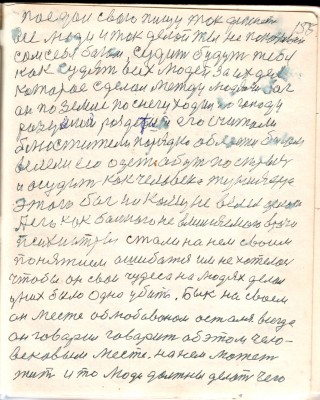 158
свою пищу и так делают
все люди и так делай ты и не
сам себя богом, судить будут тебя
как судят всех людей за их дела
которое сделал между людьми бог
он по земле по снегу ходил по холоду
разутый раздетый его считали
блюстители порядка
велели его одеть обуть постричь
и осудить как человека тунеядца
этого бог никому не велел делать
его как больного не вмешивались врачи
психиатры стали на нем своим
понятием ошибаться им не хотелось
чтобы он свои чудеса на людях делал
у них было одно убить. Бык на своем
он месте облюбованом остался всегда
он говорил говорит об этом чело-
вековым месте на нем может
жить и то люди должны делать чего